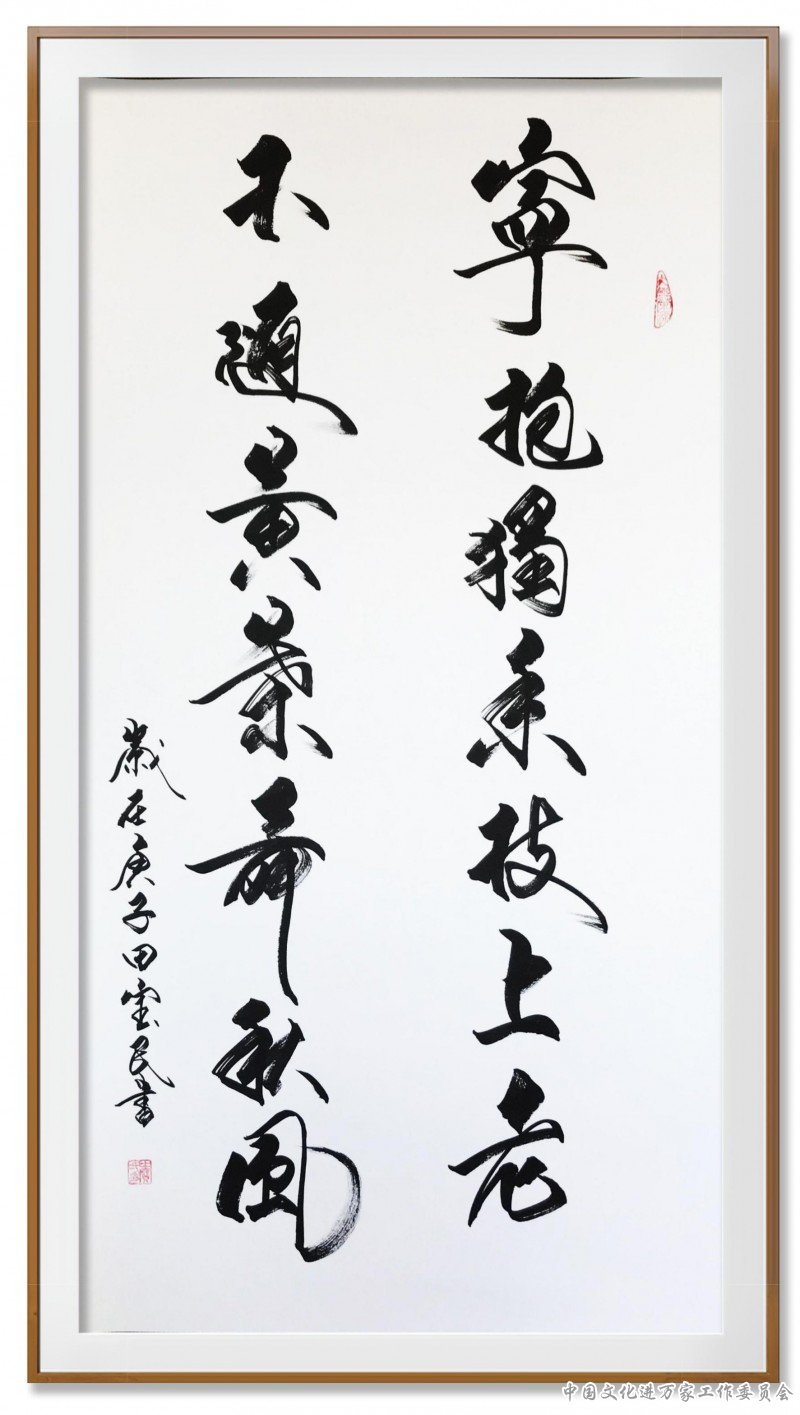 寧抱獨香枝上老
不隨黄葉舞秋風
歲在庚子田宝民書
中国文化进万家工作委员会